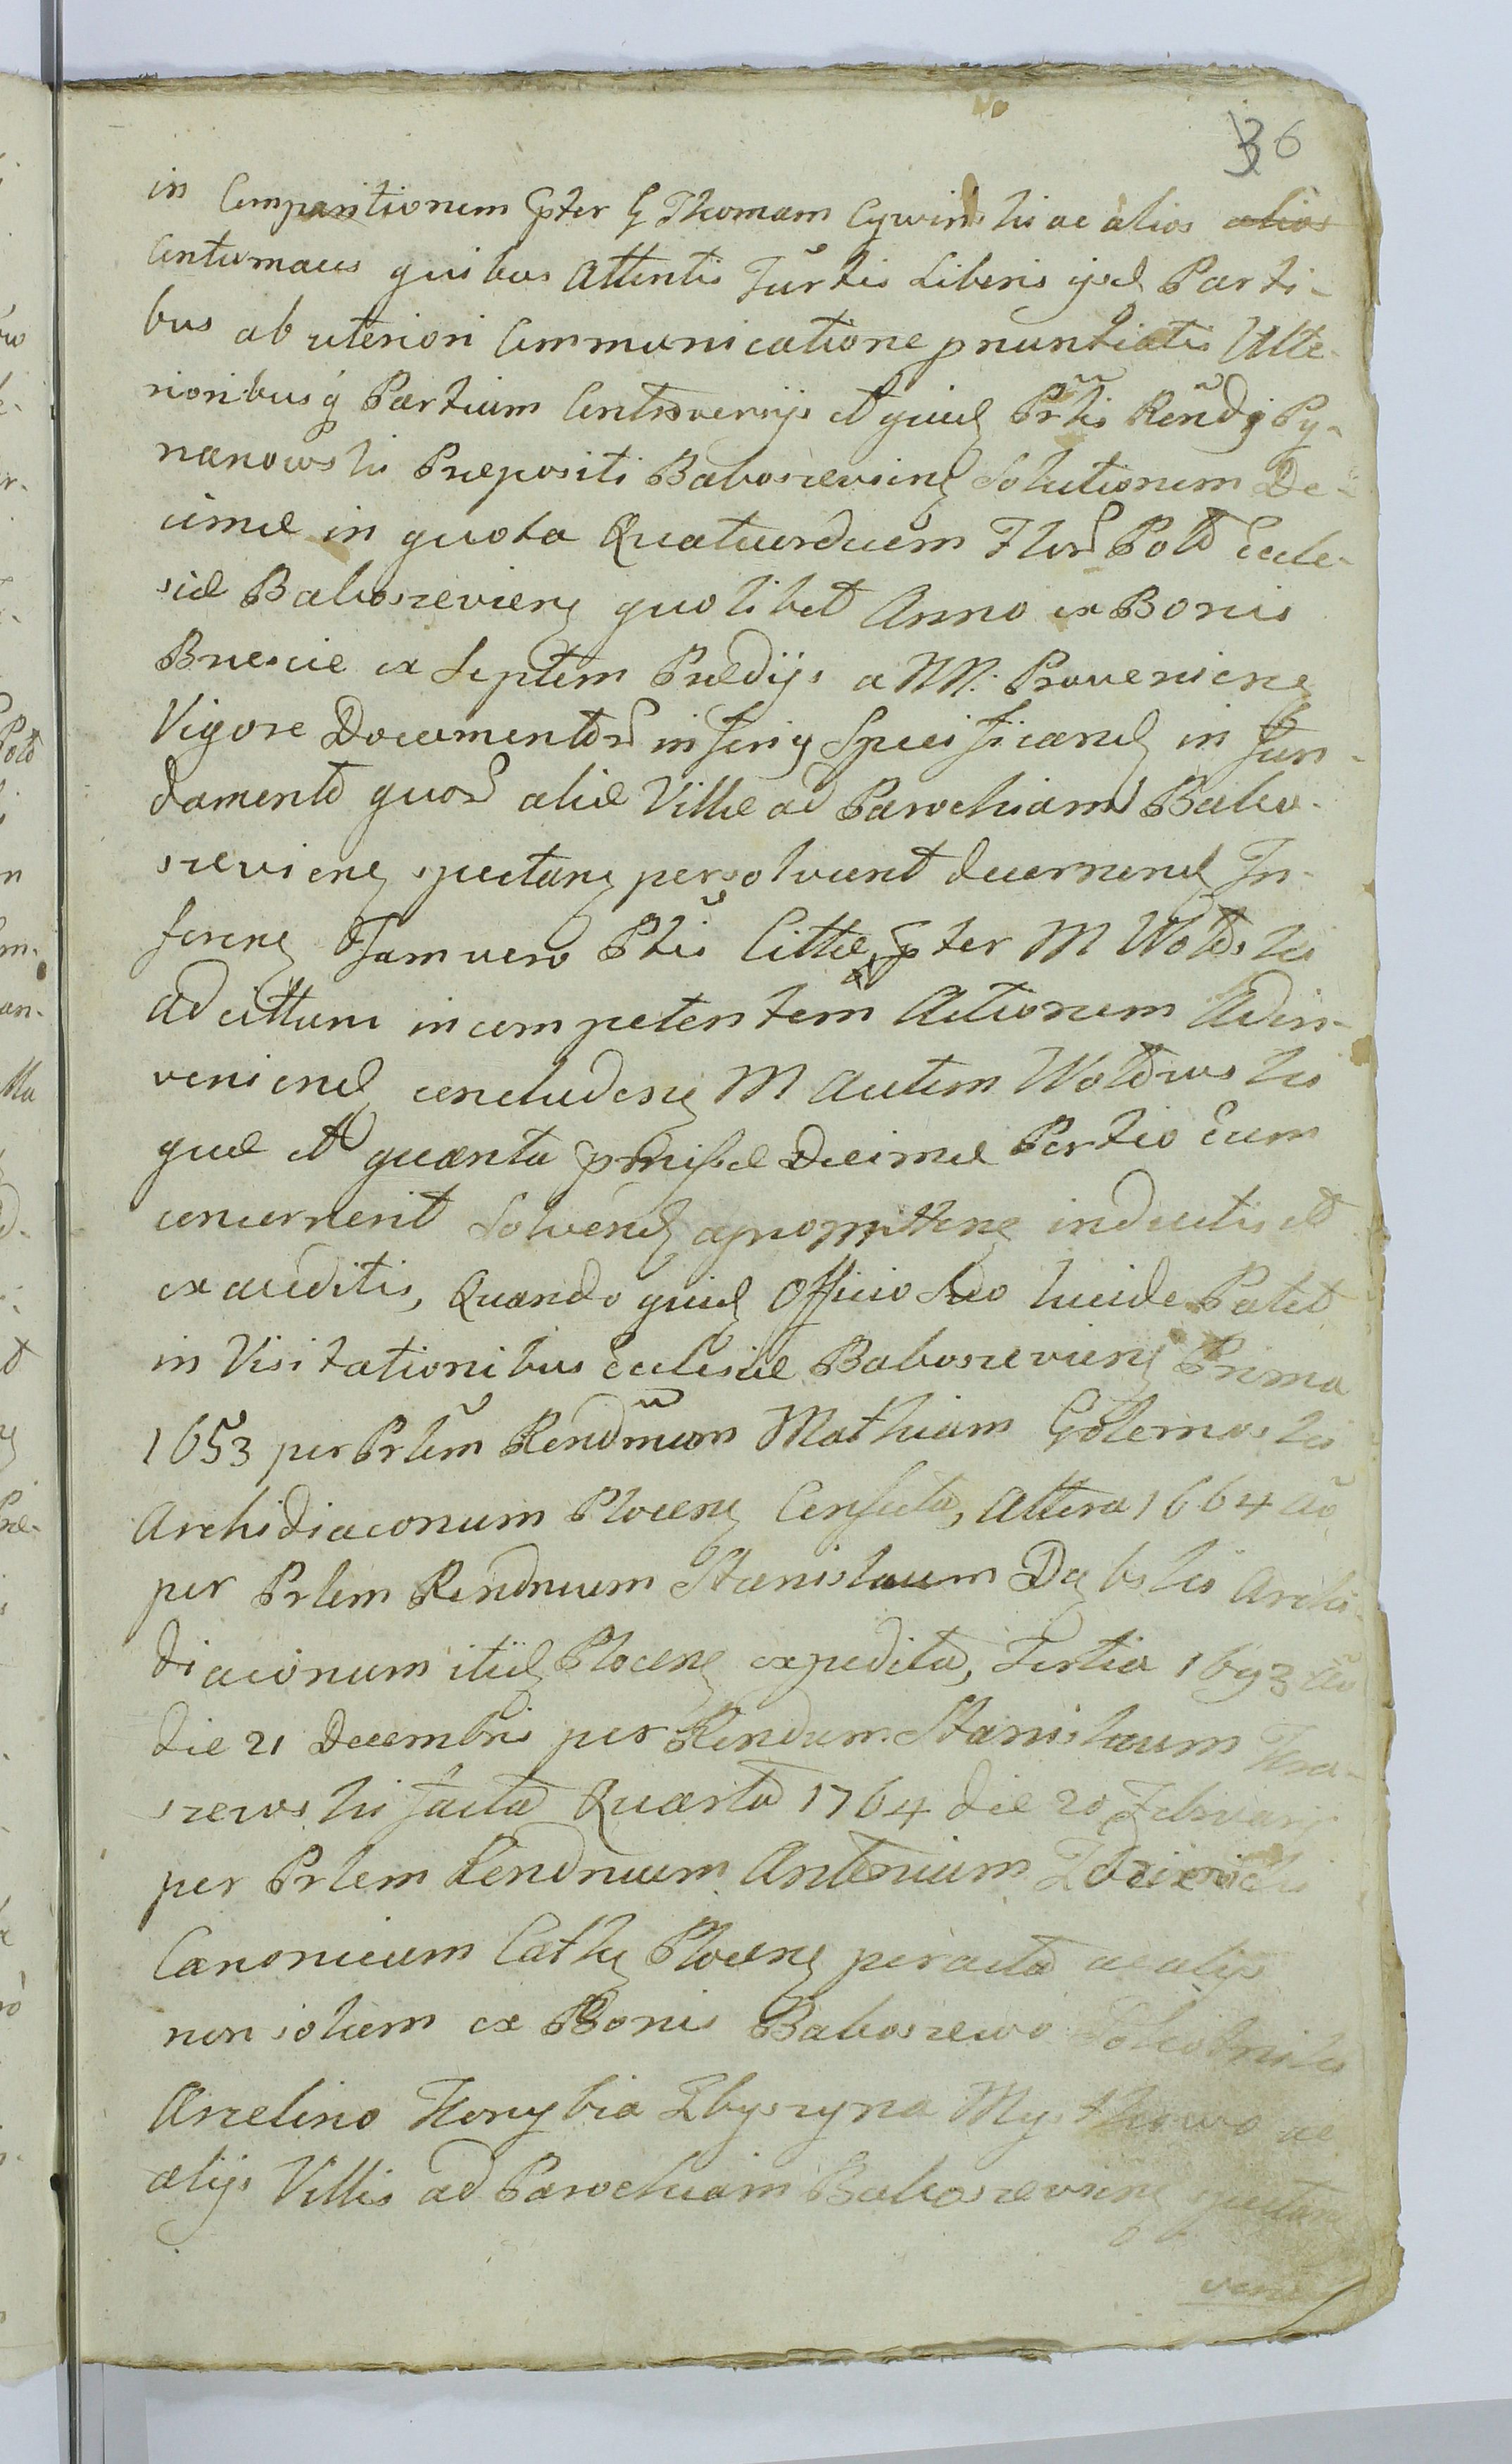 36
in Comparitionem prter G Thomam Cywinski ac alios alios
Contumaces quibus Attentis Turtis Liberis ijsd Parti-
bus ab ulteriori Communicatione pnuntiatis Ulte-
rioribusq Partium Controversijs et quid Prtis Rendi Py-
nanowski Prepositi Baboszeviens Solutionem De-
cimæ in quota Quatuordecim Flor Polo Eccle-
siæ Baboszeviens quolibet Anno ex Bonis
Brescie ex Septem Prædijs a NN. Proveniens
Vigore Documentor inferiq Specificand in Fun-
damento quor aliæ Villæ ad Parochiam Babo-
szeviens spectans persolvunt decernend In-
ferens Jam vero Ptis Cittæ prter M Wolski
ad cittum incompetentem Actionem Adin-
veniend concludens M autem Wolowski
quæ et quanta præmissæ Decimæ Portio Eum
concernerit Solvend apromittens inductis et
exauditis, Quando quid Officio Suo lucide Patet
in Visitationibus Ecclesiæ Baboszeviens Prima
1653 per Prlem Rendmum Mathiam Golemoski
Archidiaconum Plocens Confecta, Altera 1664 Ao
per Prlem Rendmum Stanislaum Dąbski Archi-
diaconum itid Plocens expedita, Tertia 1693 Ao
die 21 Decembris per Rendum Stanislaum Kra-
szewski facta Quarta 1764 die 20 Februarij
per Prlem Rendmum Antonium
Canonicum Cathy Plocens peracta ac alijs
non solum ex Bonis Baboszewo
Arcelino Korzybia Zbyszyna Mystkowo ac
alijs Villis ad Parochiam Baboszeviens spectan